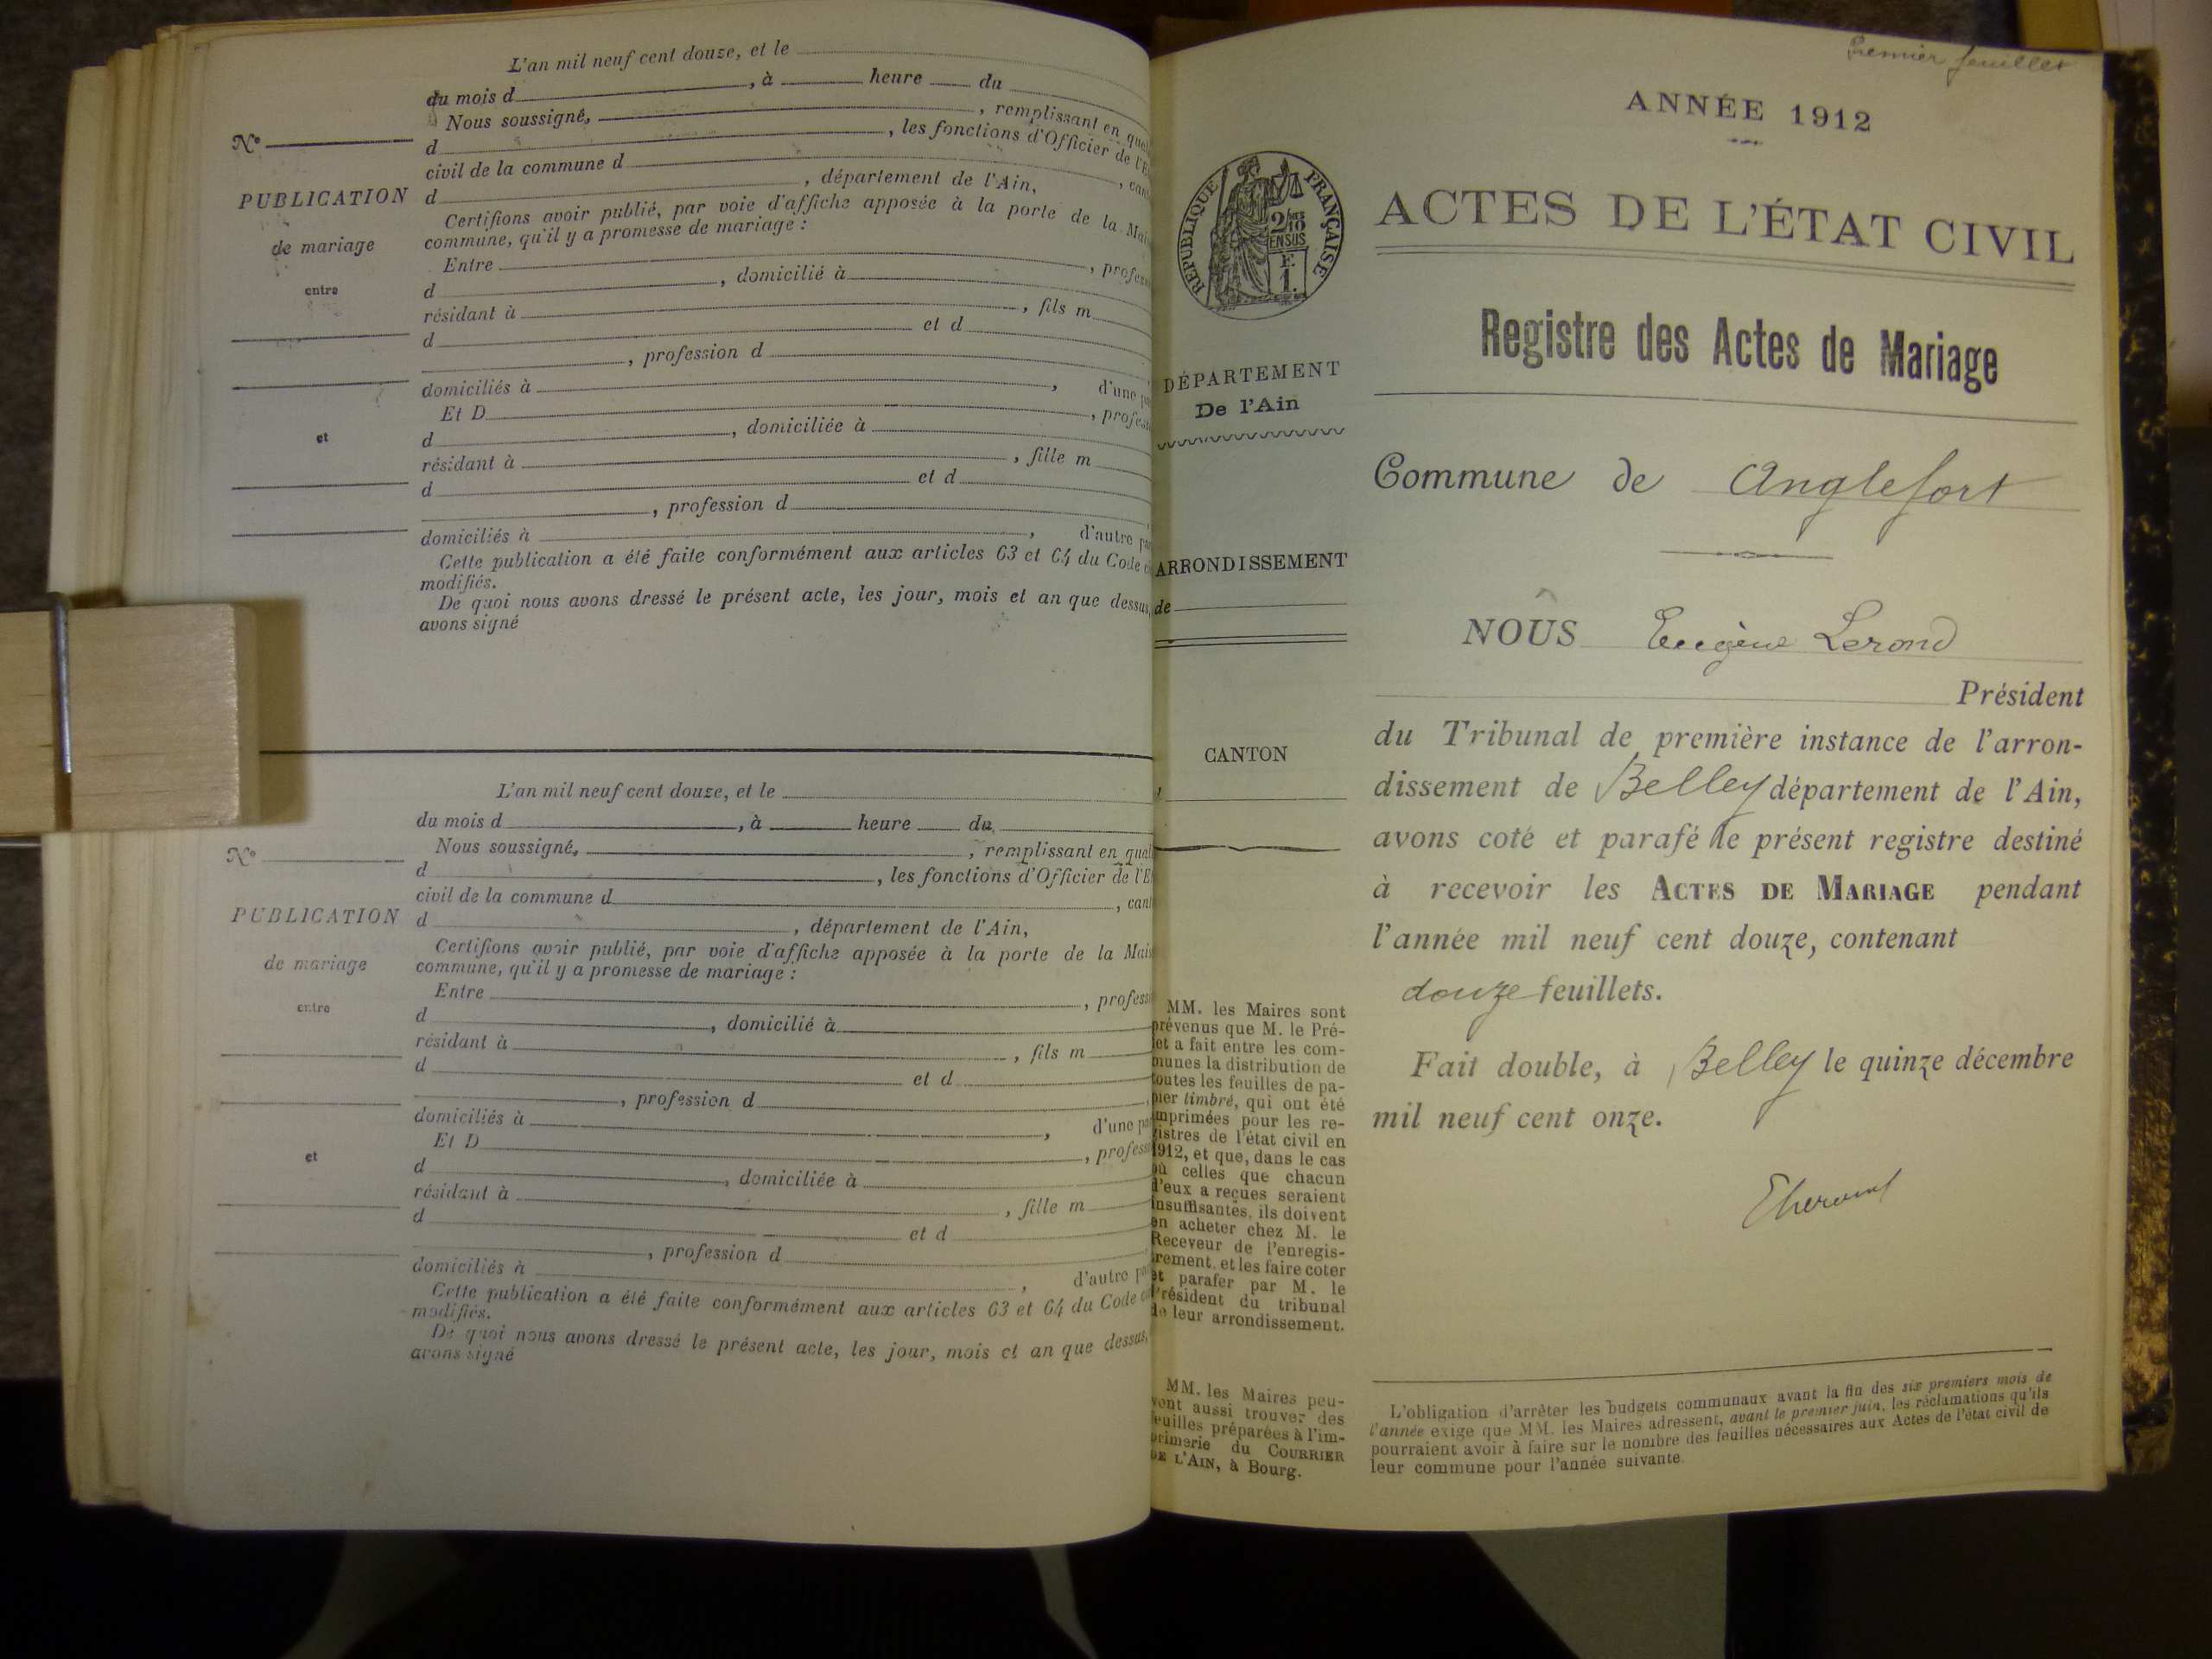 L'an mil neuf cent douze, et le
du mois d , à heure du
Nous soussigné, , remplissant en
d , les fonctions d'Officier de
civil de la commune d
d , département de l'Ain,
Certifions avoir publié, par voie d'affiche apposée à la porte de la
commune, qu'il y a promesse de mariage :
Entre
d , domicilié à
résidant à , fils m
d et d
, profession d
domiciliés à , d'une
Et D
d , domiciliée à
résidant à , fille m
d et d
, profession d
domiciliés à , d'autre
Cette publication a été faite conformément aux articles 63 et 64 du Code
modifiés.
De quoi nous avons dressé le présent acte, les jour, mois et an que dessus,
avons signé
No
PUBLICATION
de mariage
entre
et
L'an mil neuf cent douze, et le
du mois d , à heure du
Nous soussigné, , remplissant en
d , les fonctions d'Officier de
civil de la commune d
d , département de l'Ain,
Certifions avoir publié, par voie d'affiche apposée à la porte de la
commune, qu'il y a promesse de mariage :
Entre
d , domicilié à
résidant à , fils m
d et d
, profession d
domiciliés à , d'une
Et D
d , domiciliée à
résidant à , fille m
d et d
, profession d
domiciliés à , d'autre
Cette publication a été faite conformément aux articles 63 et 64 du Code
modifiés.
De quoi nous avons dressé le présent acte, les jour, mois et an que dessus,
avons signé
No
PUBLICATION
de mariage
entre
et
Premier feuillet
ANNÉE 1912
RÉPUBLIQUE FRANÇAISE
ACTES DE L'ÉTAT CIVIL
Registre des Actes de Mariage
DÉPARTEMENT
De l'Ain
ARRONDISSEMENT
de
CANTON
Commune de Anglefort
NOUS Eugène Lerond
Président
du Tribunal de première instance de l'arron-
dissement de Belley département de l'Ain,
avons coté et parafé le présent registre destiné
à recevoir les ACTES DE MARIAGE pendant
l'année mil neuf cent douze, contenant
douze feuillets.
Fait double, à Belley le quinze décembre
mil neuf cent onze.
MM. les Maires sont
prévenus que M. le Pré-
fet a fait entre les com-
munes la distribution de
toutes les feuilles de pa-
pier timbré, qui ont été
imprimées pour les re-
gistres de l'état civil en
1912, et que, dans le cas
où celles que chacun
d'eux a reçues seraient
insuffisantes, ils doivent
en acheter chez M. le
Receveur de l'enregis-
trement, et les faire coter
et parafer par M. le
Président du tribunal
de leur arrondissement.
MM. les Maires peu-
vent aussi trouver des
feuilles préparées à l'im-
primerie du COURRIER
DE L'AIN, à Bourg.
L'obligation d'arrêter les budgets communaux avant la fin des six premiers mois de
l'année exige que MM. les Maires adressent, avant le premier juin, les réclamations qu'ils
pourraient avoir à faire sur le nombre des feuilles nécessaires aux Actes de l'état civil de
leur commune pour l'année suivante.